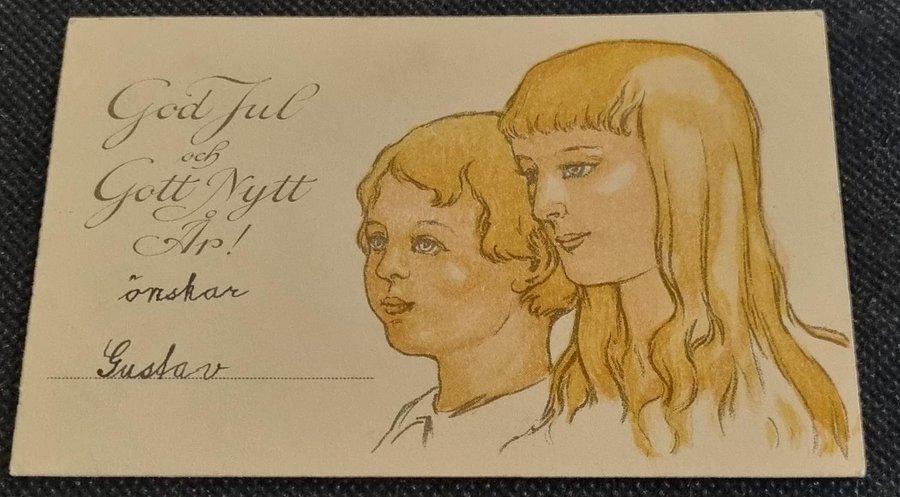 God Jul
och
Gott Nytt
År!
önskar
Gustav